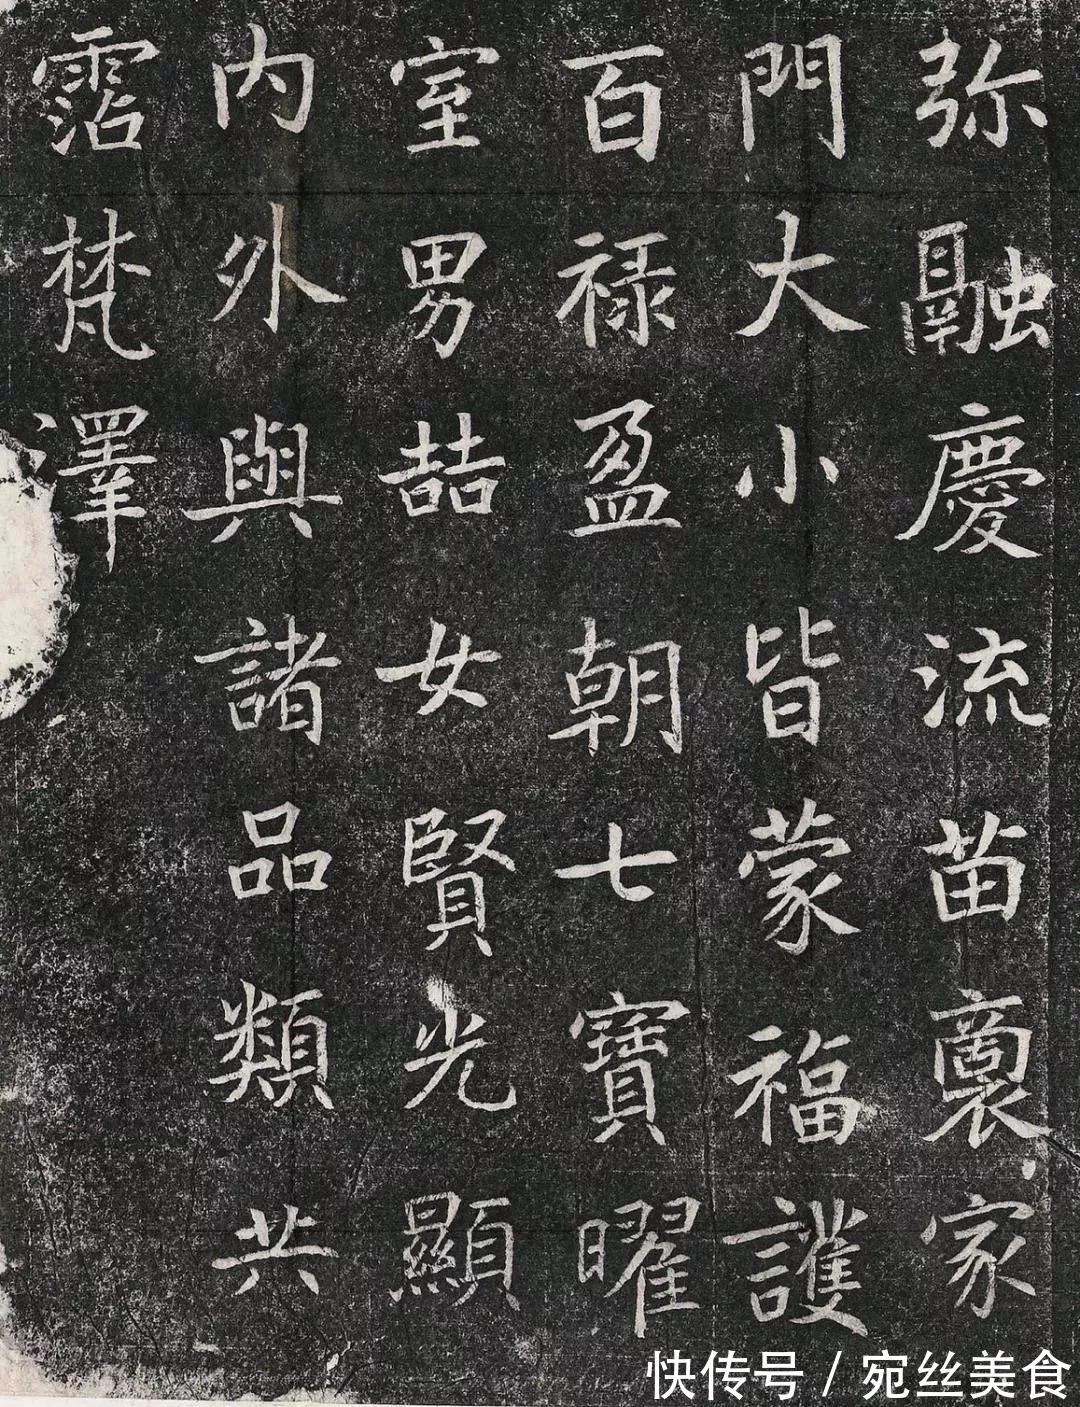 弥融慶流苗裔家
門大小皆蒙福護
百禄盈朝七寶曜
室男喆女賢光顯
内外與諸品類共
霑梵澤
快传号/宛丝美食